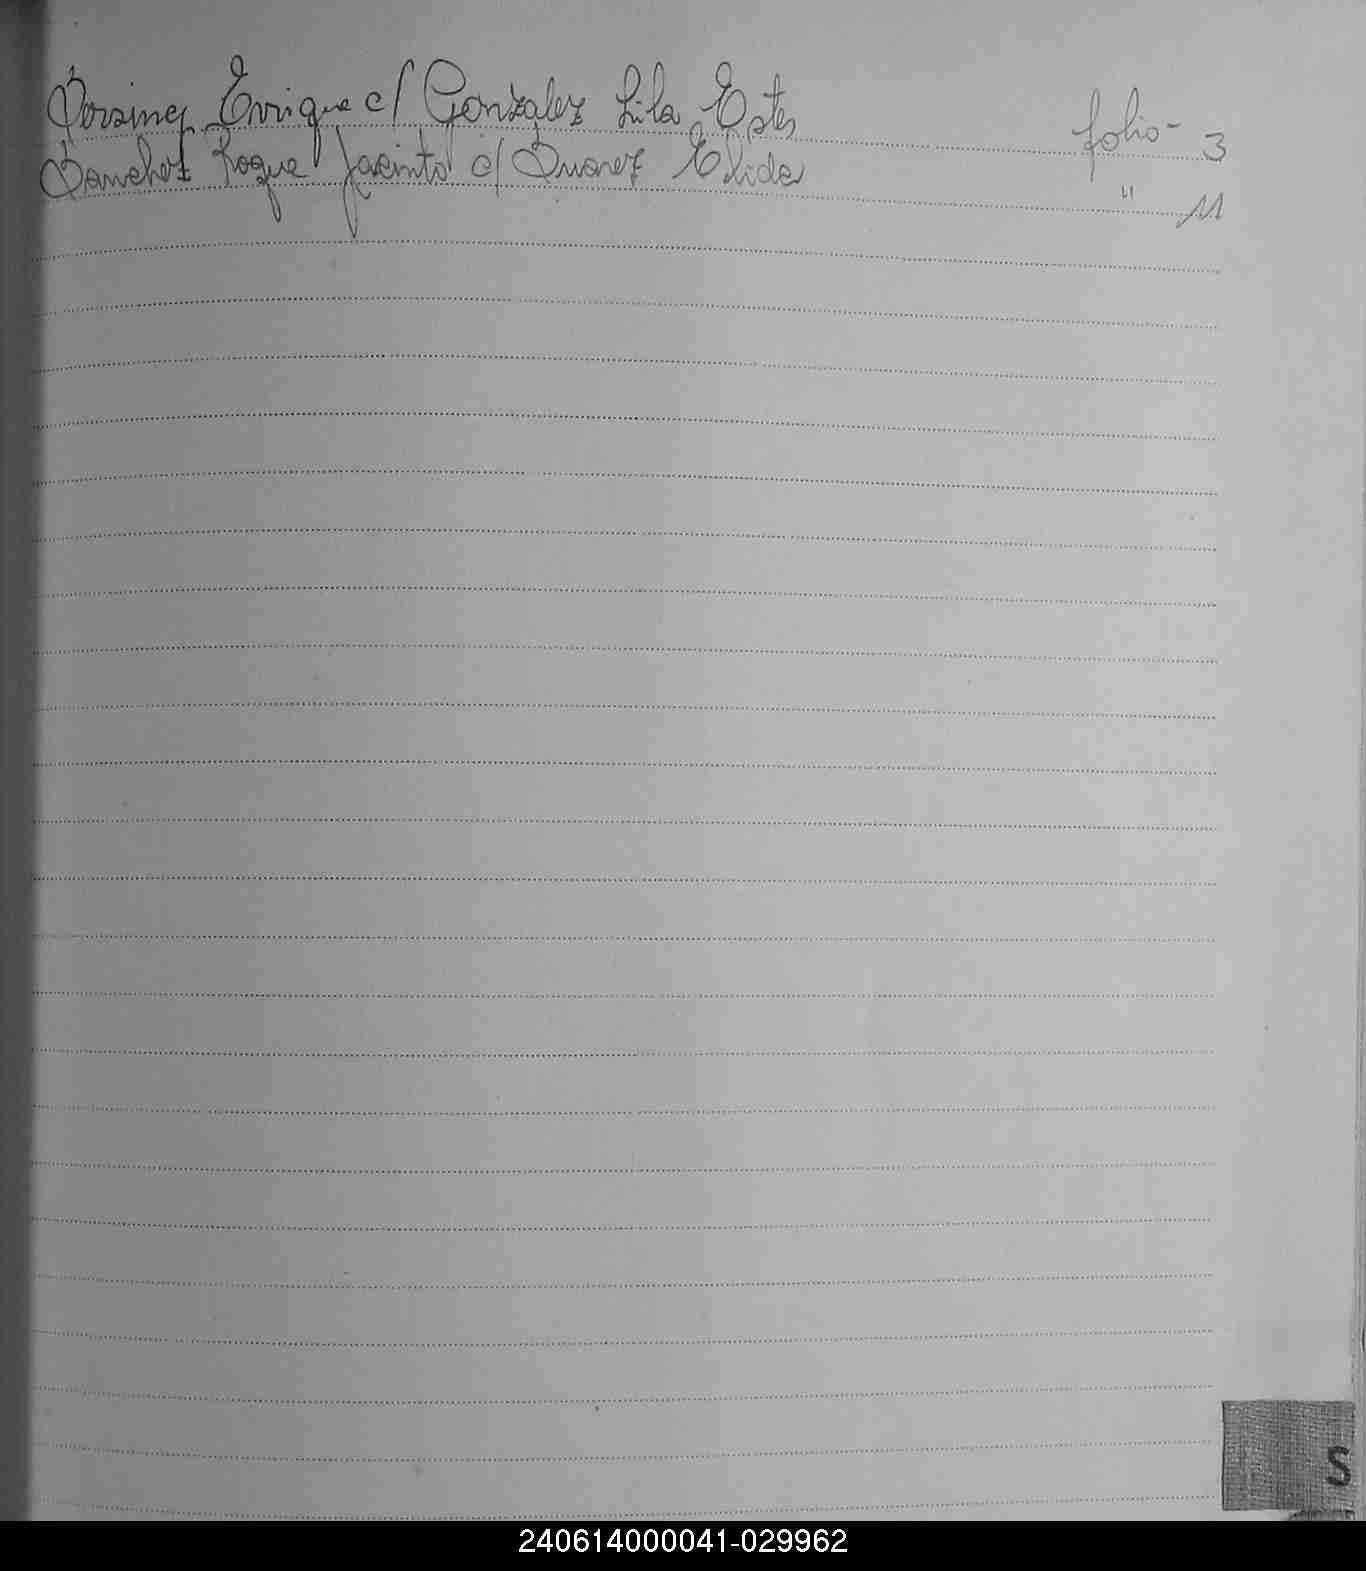 Enrique c/ Gonzalez Lila Ester folio - 3
Sanchez Roque Jacinto c/ Suarez Elida " 11
S
240614000041-029962